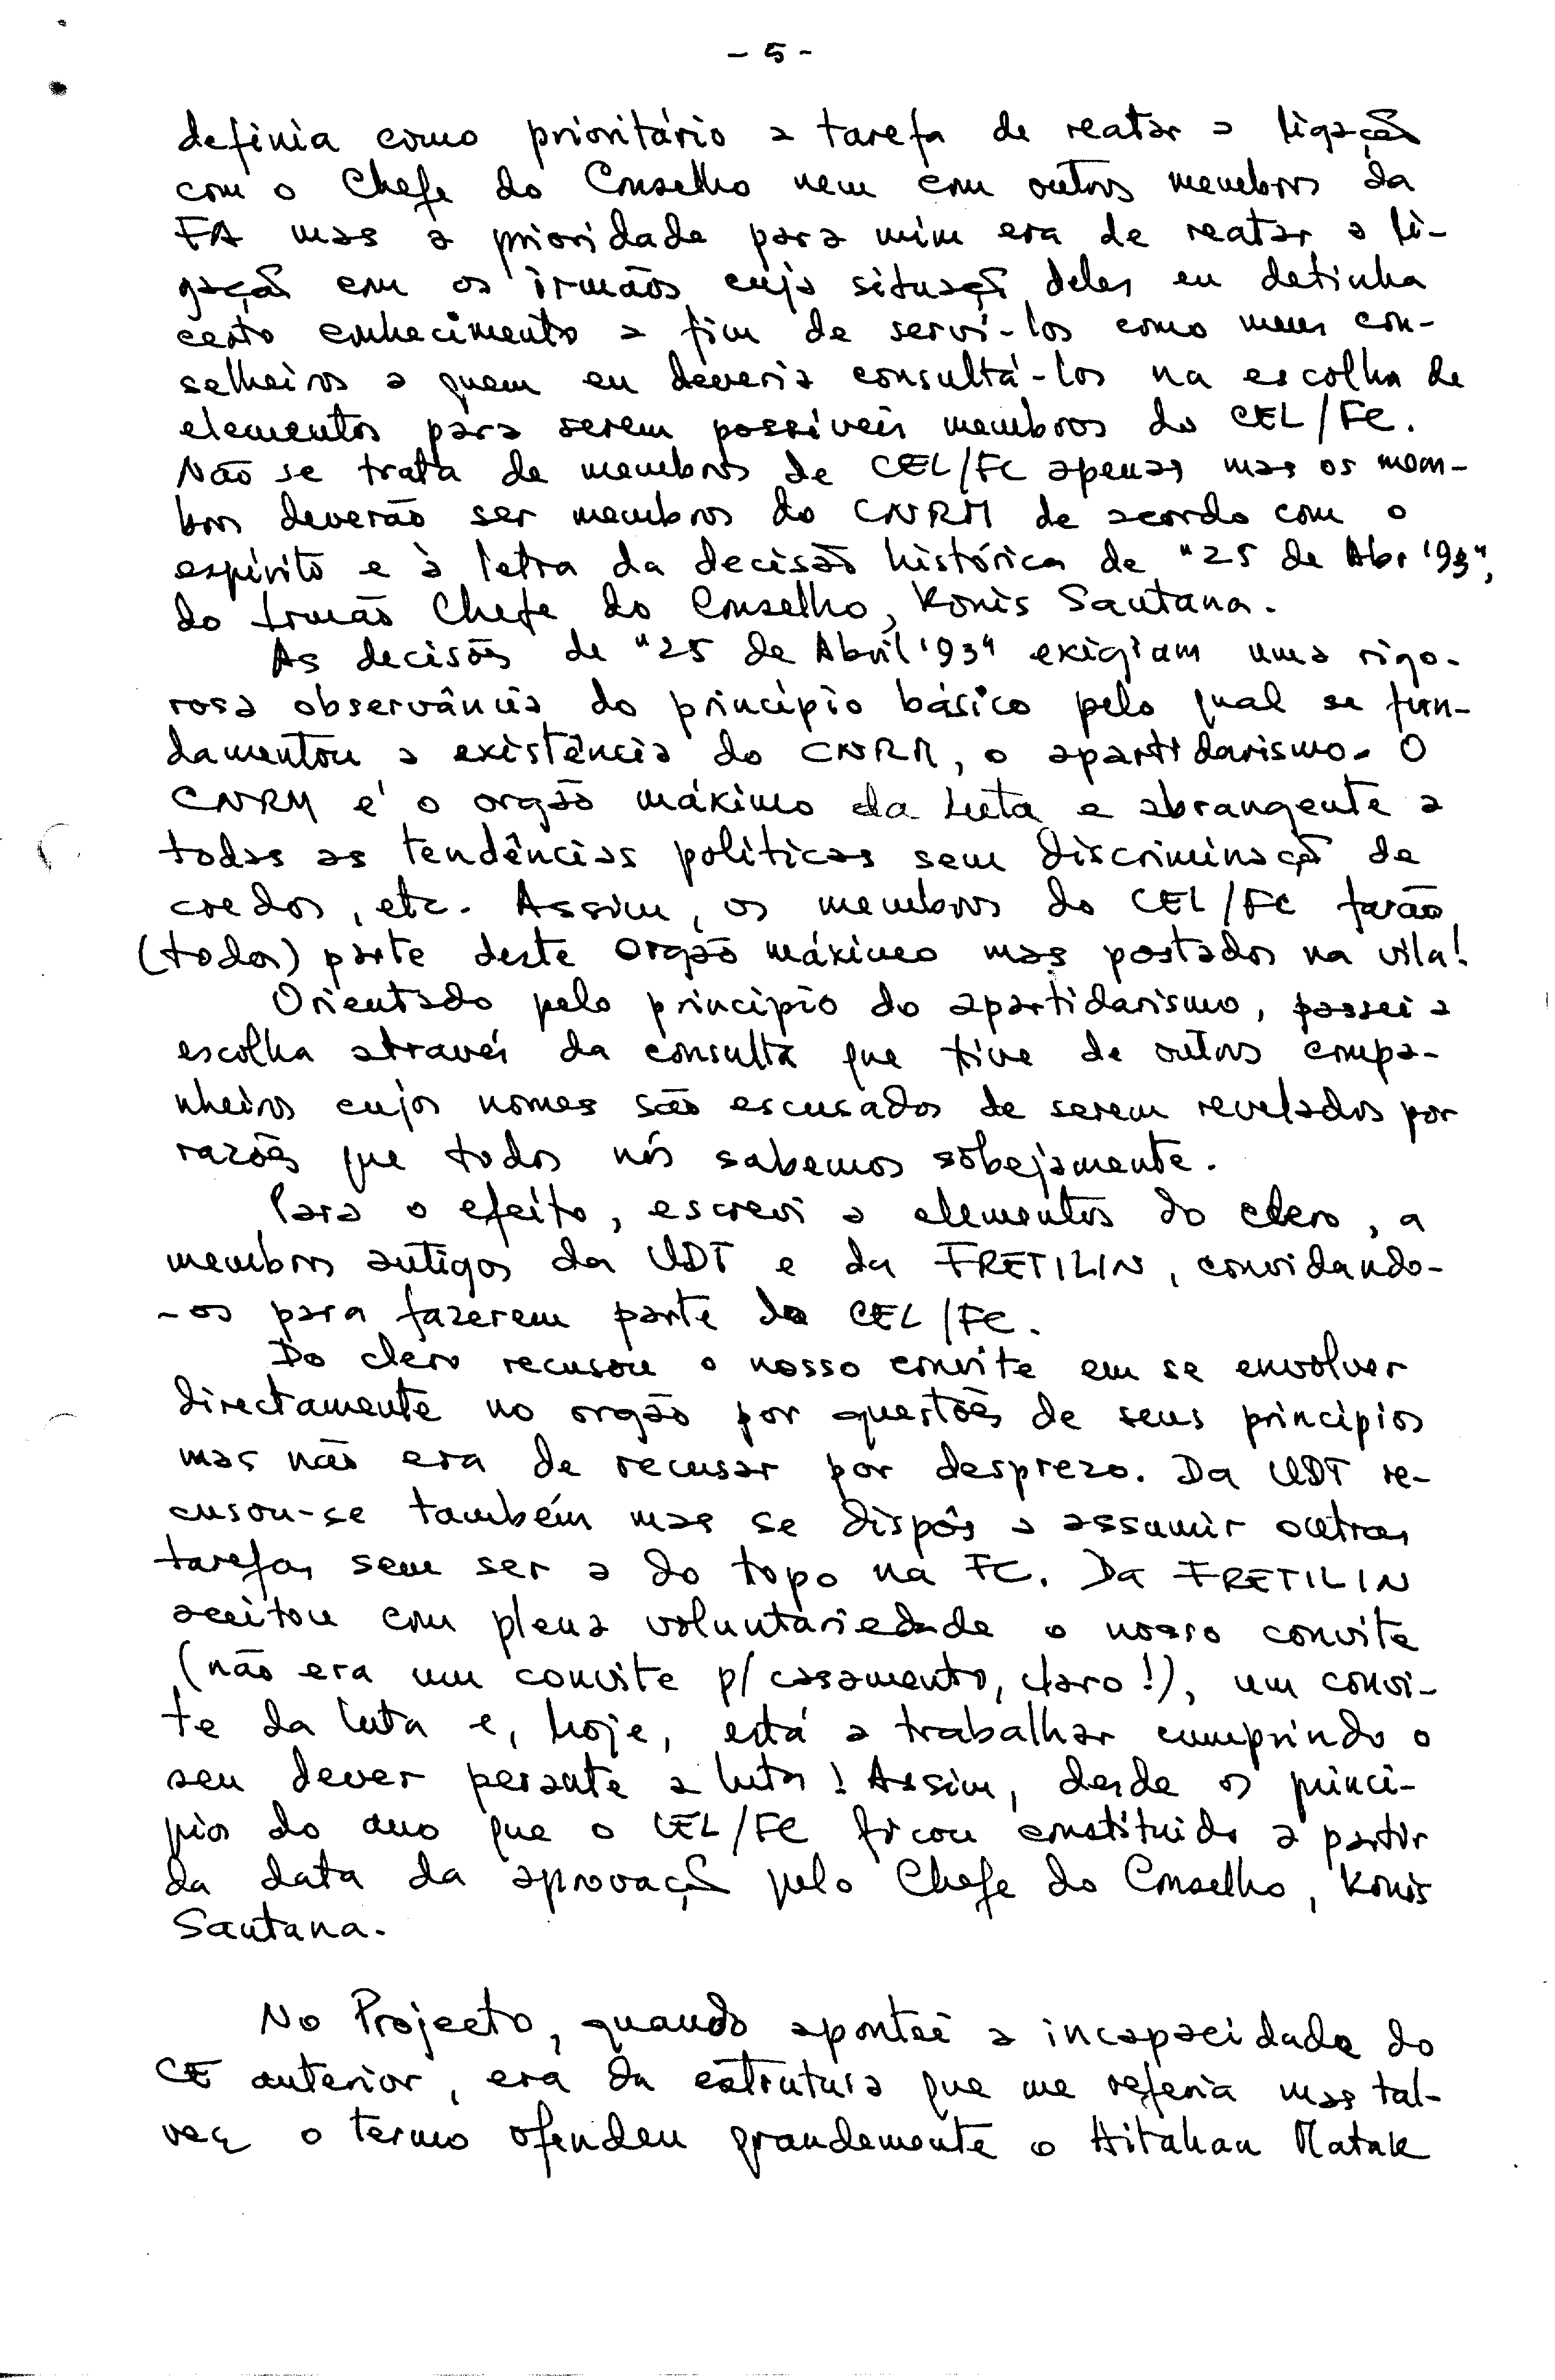 - 5 -
definia como prioritário a tarefa de reatar a ligação
com o Chefe do Conselho nem com outros membros da
FA mas a prioridade para mim era de reatar a li-
gação com os irmãos cuja situação deles eu detinha
certo conhecimento a fim de servi-los como meus con-
selheiros a quem eu deveria consultá-los na escolha de
elementos para serem possíveis membros do CEL/FC.
Não se trata de membros de CEL/FC apenas mas os mem-
bros deverão ser membros do CNRM de acordo com o
espírito e à letra da decisão histórica de "25 de Abr '93",
do Irmão Chefe do Conselho, Konis Santana.
As decisões de "25 de Abril '93" exigiam uma rigo-
rosa observância do princípio básico pelo qual se fun-
damentou a existência do CNRM, o apartidarismo. O
CNRM é o orgão máximo da Luta e abrangente a
todas as tendências políticas sem discriminação de
credos, etc. Assim, os membros do CEL/FC farão
(todos) parte deste Orgão máximo mas postados na vila!
Orientado pelo princípio do apartidarismo, passei a
escolha através da consulta que tive de outros compa-
nheiros cujos nomes são escusados de serem revelados por
razões que todos nós sabemos sobejamente.
Para o efeito, escrevi a elementos do clero, a
membros antigos da UDT e da FRETILIN, convidando-
-os para fazerem parte do CEL/FC.
Do clero recusou o nosso convite em se envolver
directamente no orgão por questões de seus princípios
mas não era de recusar por desprezo. Da UDT re-
cusou-se também mas se dispôs a assumir outras
tarefas sem ser a do topo na FC. Da FRETILIN
aceitou com plena voluntariedade o nosso convite
(não era um convite p/ casamento, claro!), um convi-
te da luta e, hoje, está a trabalhar cumprindo o
seu dever perante a luta! Assim, desde os princí-
pios do ano que o CEL/FC ficou constituido a partir
da data da aprovação pelo Chefe do Conselho, Konis
Santana.
No Projecto, quando apontei a incapacidade do
CE anterior, era da estrutura que me referia mas tal-
vez o termo ofendeu grandemente o Aitahan Matak